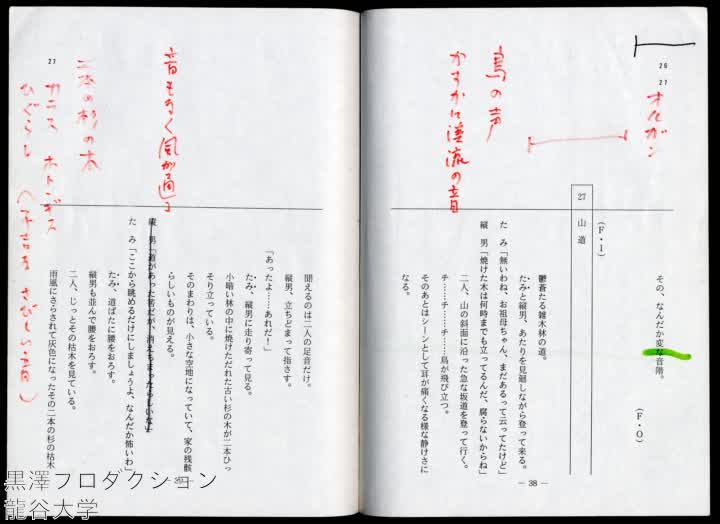 26
27
オルガン
鳥の声
かすかに渓流の音
その、なんだか変な音階。
(F・O)
(F・I)
27 山道
鬱蒼たる雑木林の道。
たみと縦男、あたりを見廻しながら登って来る。
たみ「無いわね、お祖母ちゃん、まだあるって云ってたけど」
縦男「焼けた木は何時までも立ってるんだ、腐らないからね」
二人、山の斜面に沿った急な坂道を登って行く。
チ……チ……チ……鳥が飛び立つ。
そのあとはシーンとして耳が痛くなる様な静けさに
なる。
— 38 —
音もなく風が通る
二本の杉の木
27
カナカナ ホトトギス
ひぐらし
さびしい音)
聞えるのは二人の足音だけ。
縦男、立ちどまって指さす。
「あったよ……あれだ!」
たみ、縦男に走り寄って見る。
小暗い林の中に焼けただれた古い杉の木が二本ひっ
そり立っている。
そのまわりは、小さな空地になっていて、家の残骸
らしいものが見える。
縦男「道があった筈だが、消えちまったらしいな」
たみ「ここから眺めるだけにしましょうよ、なんだか怖いわ」
たみ、道ばたに腰をおろす。
縦男も並んで腰をおろす。
二人、じっとその枯木を見ている。
雨風にさらされて灰色になったその二本の杉の枯木
黒澤プロダクション
龍谷大学